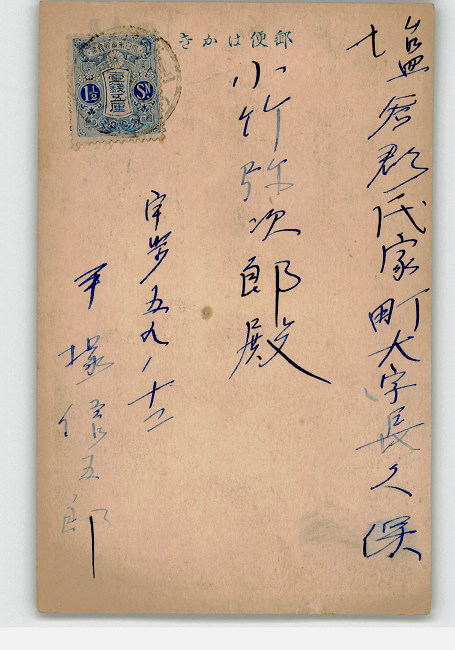 郵便はかき
塩谷郡氏家町大字長久保
小竹弥次郎殿
五九ノ十二
平塚信五郎
壹銭五厘
1½ SN